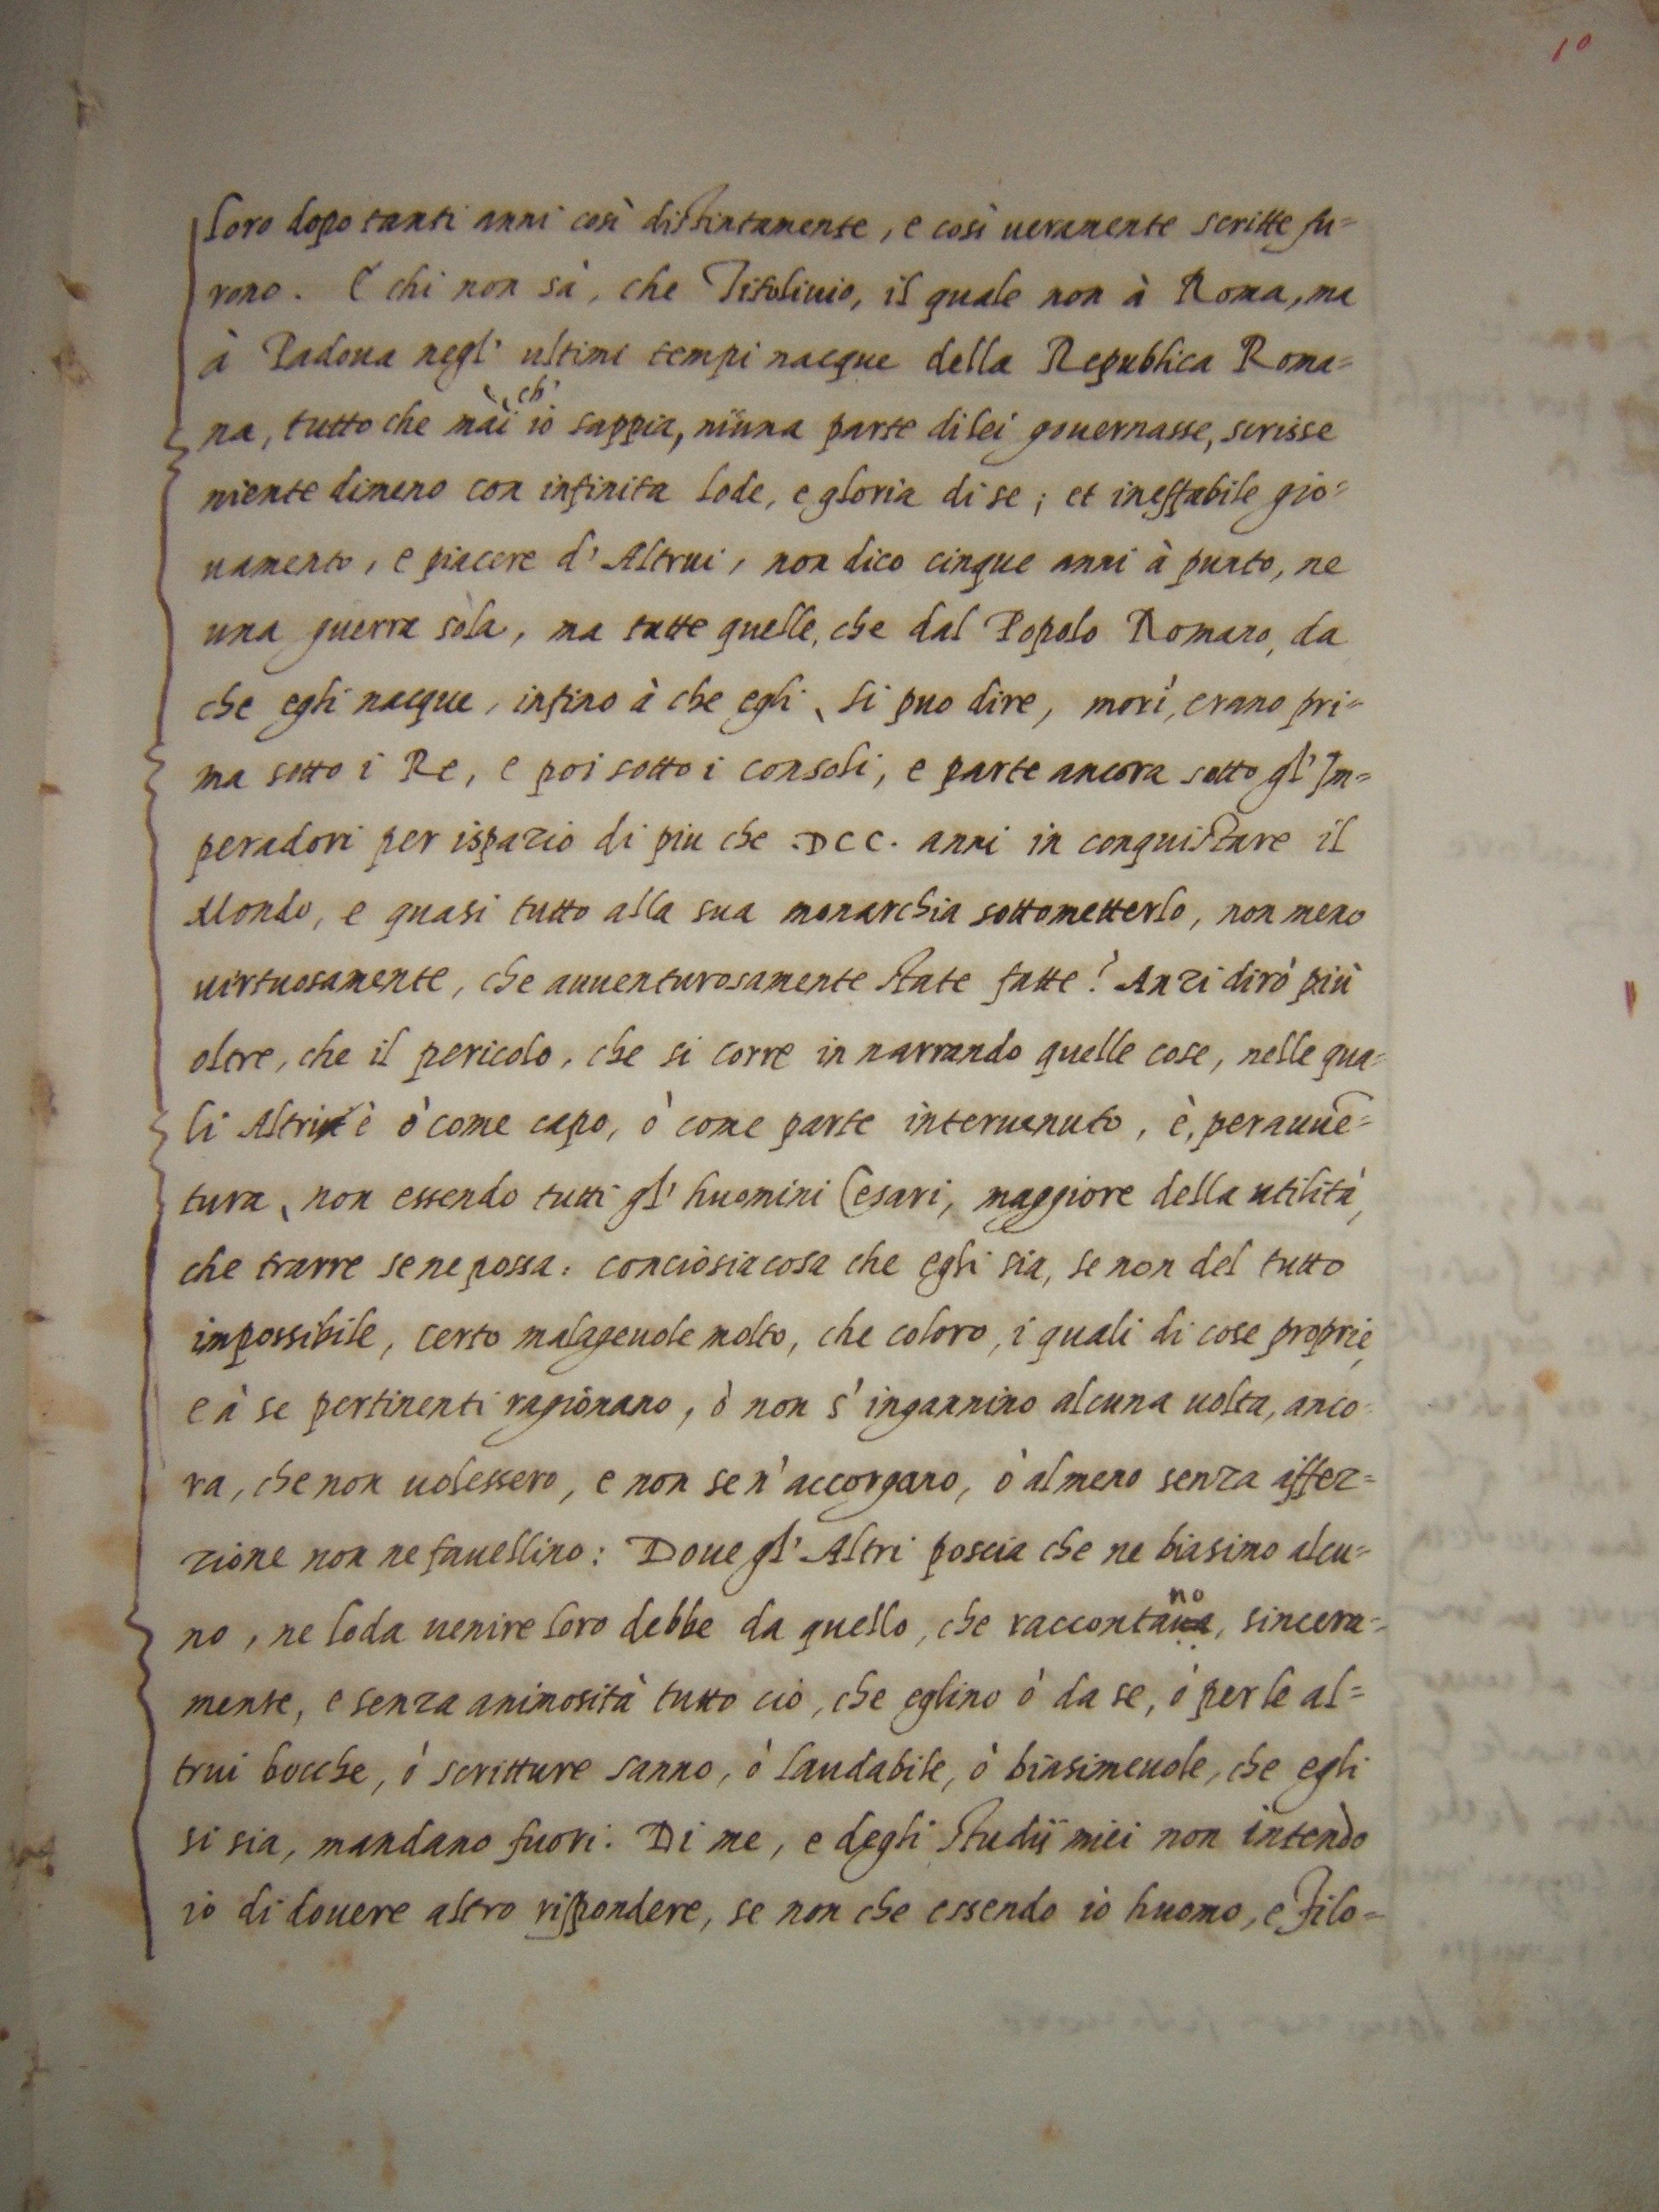 10
loro dopo tanti anni così distintamente, e così ueramente scritte fu=
rono. E chi non sà, che Titoliuio, il quale non à Roma, ma
à Padoua negl' ultimi tempi nacque della Republica Roma=
ch'
na, tutto che mài io sappia, niuna parte di lei gouernasse, scrisse
niente dimeno con infinita lode, e gloria di se; et ineffabile gio=
uamento, e piacere d' Altrui, non dico cinque anni à punto, ne
una guerra sola, ma tutte quelle, che dal Popolo Romano, da
che egli nacque, infino à che egli, si puo dire, morì, erano pri=
ma sotto i Re, e poi sotto i consoli, e parte ancora sotto gl' Im=
peradori per ispazio di piu che .DCC. anni in conquistare il
Mondo, e quasi tutto alla sua monarchia sottometterlo, non meno
uirtuosamente, che auuenturosamente state fatte? Anzi dirò più
oltre, che il pericolo, che si corre in narrando quelle cose, nelle qua=
li Altri è ò come capo, ò come parte interuenuto, è, perauuē=
tura, non essendo tutti gl' huomini Cesari, maggiore della utilità,
che trarre se ne possa: conciosia cosa che egli sia, se non del tutto
impossibile, certo malageuole molto, che coloro, i quali di cose proprie,
e à se pertinenti ragionano, ò non s' ingannino alcuna uolta, anco=
ra, che non uolessero, e non se n' accorgano, ò almeno senza affez=
zione non ne fauellino: Doue gl' Altri poscia che ne biasimo alcu=
no
no, ne loda uenire loro debbe da quello, che raccontaua, sincera=
mente, e senza animosità tutto ciò, che eglino ò da se, ò per le al=
trui bocche, ò scritture sanno, ò laudabile, ò biasimeuole, che egli
si sia, mandano fuori. Di me, e degli studij miei non intendo
io di douere altro rispondere, se non che essendo io huomo, e Filo=